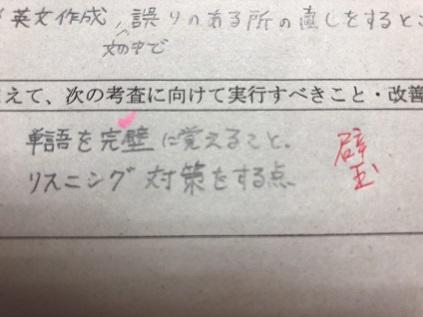 英文作成、誤りのある所の直しをすると
文中で
えて、次の考査に向けて実行すべきこと・改善
単語を完壁に覚えること。
リスニング対策をする点
璧